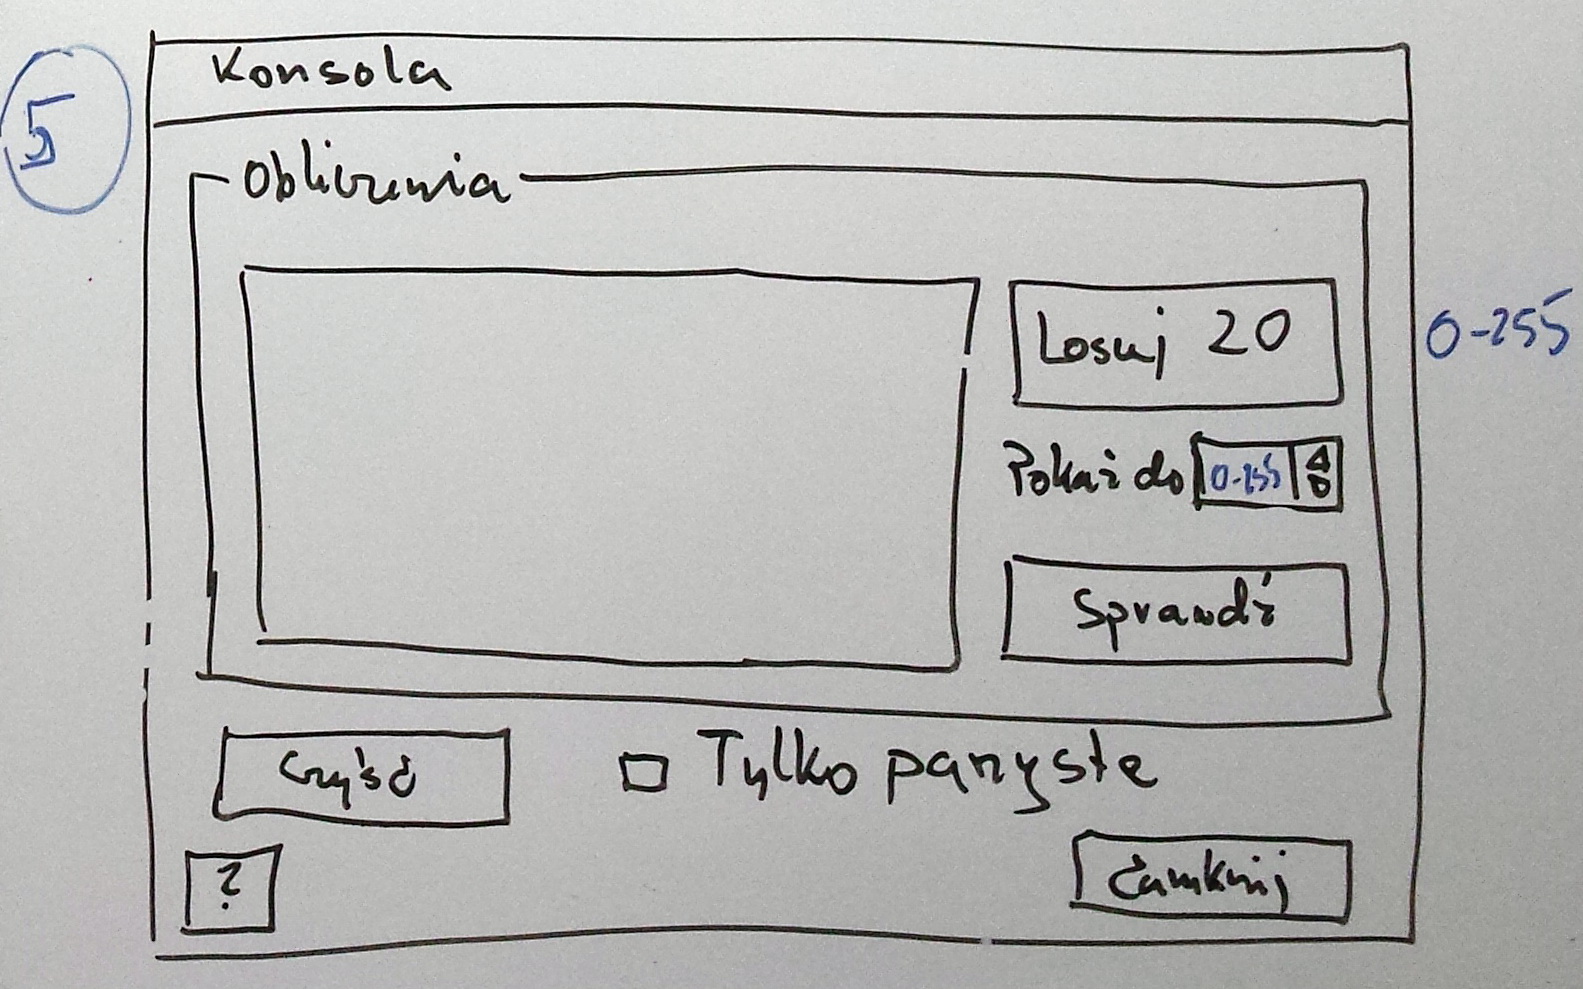 5
Konsola
Obliczenia
Losuj 20
0-255
Pokaż do 0-255
Sprawdź
Czyść
Tylko parzyste
?
Zamknij